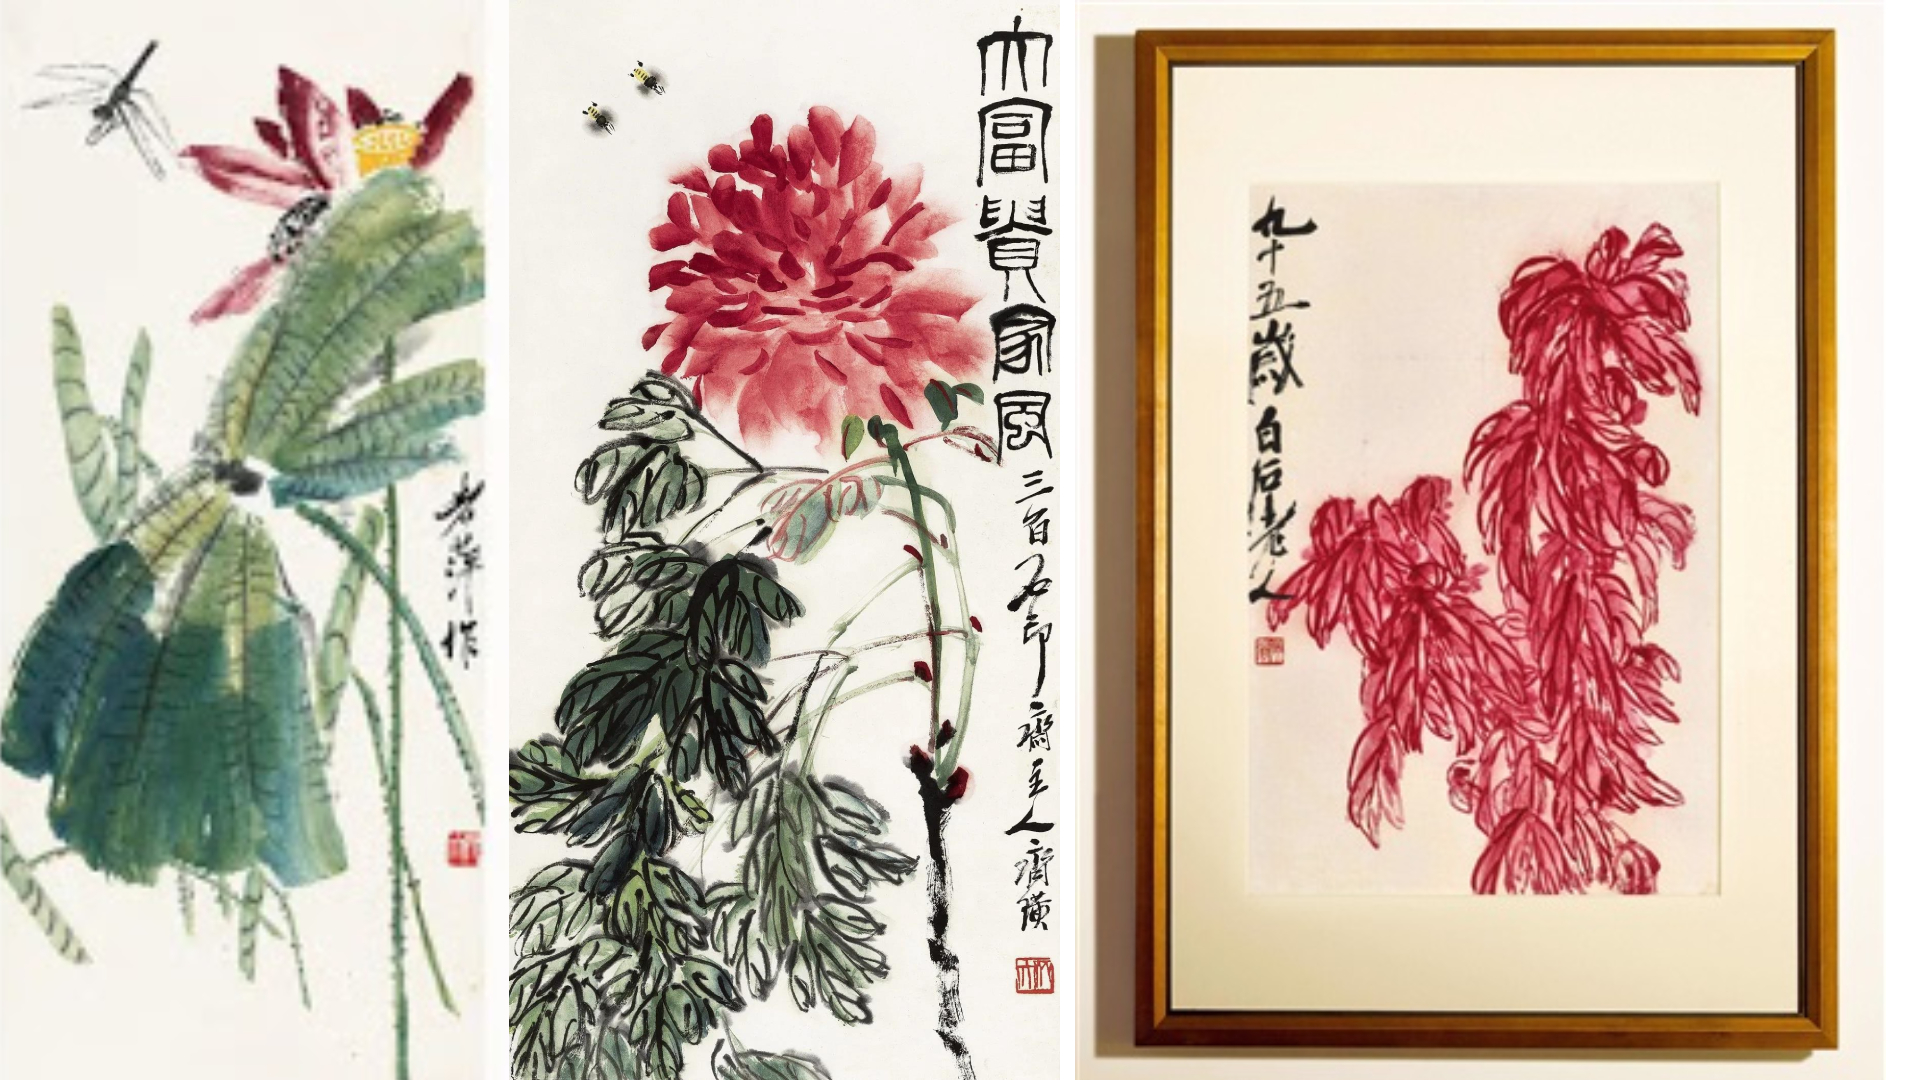 老萍作
大富貴家風
三百石印齋主人齊璜
九十五歲白石老人